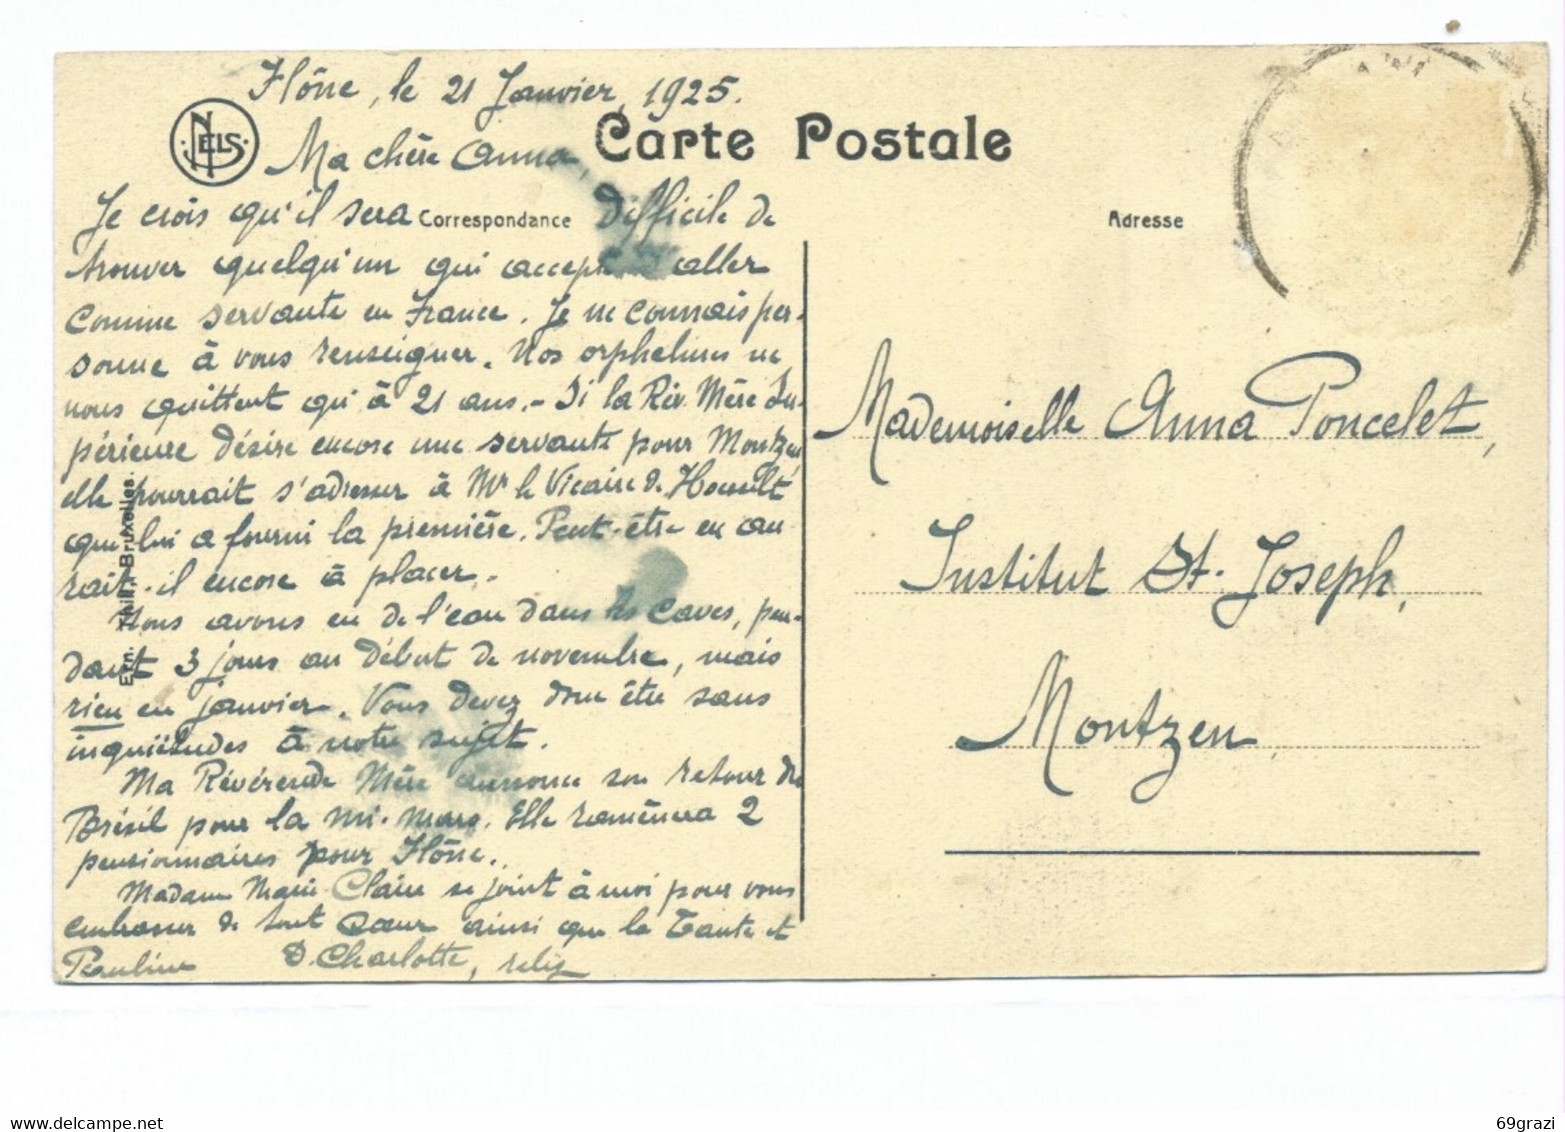 Flône, le 21 Janvier, 1925.
NELS
Carte Postale
Ma chère Anna,
Correspondance
Adresse
Je crois qu'il sera difficile de
trouver quelqu'un qui accepte d'aller
comme servante en France. Je ne connais per-
sonne à vous renseigner. Nos orphelines ne
nous quittent qu'à 21 ans. - Si la Rév. Mère Su-
périeure désire encore une servante pour Montzen,
elle pourrait s'adresser à Mr le Vicaire de
qui lui a fourni la première. Peut-être en au
rait-il encore à placer.
Nous avons eu de l'eau dans les caves, pen-
dant 3 jours au début de novembre, mais
rien en janvier. Vous devez donc être sans
inquiétudes à notre sujet.
Ma Révérende Mère annonce son retour du
Brésil pour la mi-mars. Elle ramènera 2
pensionnaires pour Flône.
Madame Marie Claire se joint à moi pour vous
embrasser de tout cœur ainsi que la Tante et
Pauline D. Charlotte, relig
Ern. Thill, Bruxelles.
Mademoiselle Anna Poncelet,
Institut St. Joseph,
Montzen
69grazi